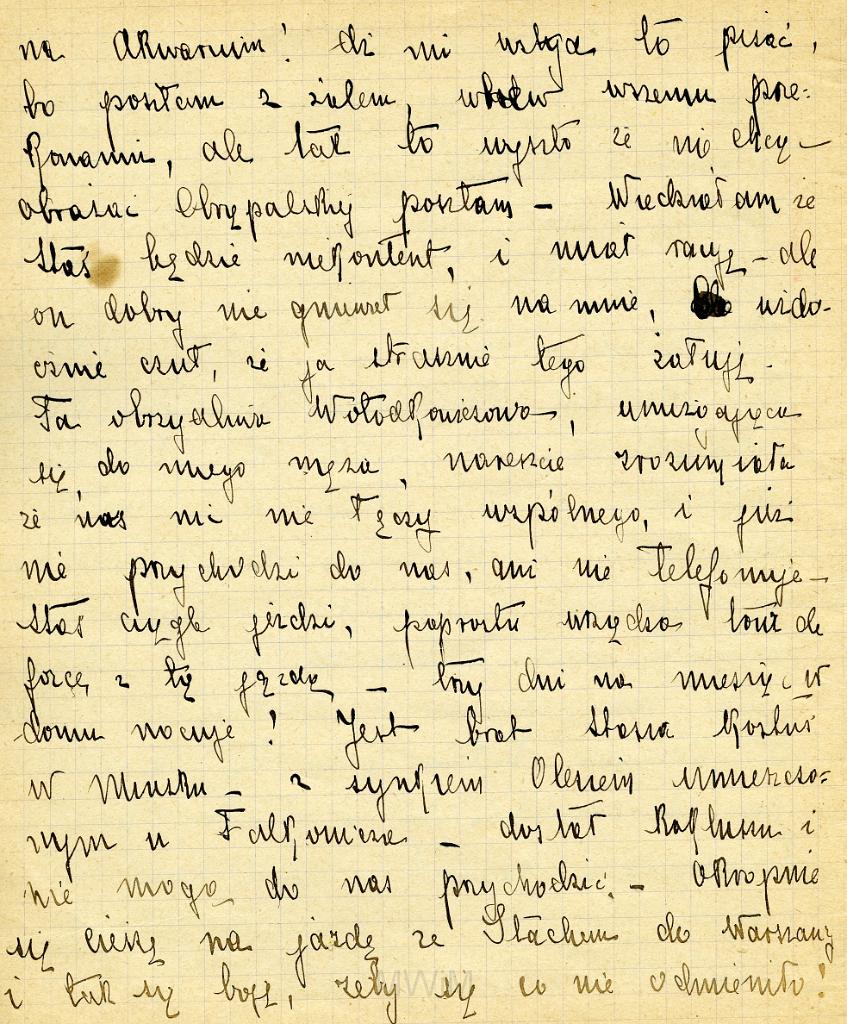 na Akwarium! dź mi wstyd to pisać,
bo poszłam z żalem, wbrew wszemu prze-
konaniu, ale tak to wyszło że nie chcąc
obrażać Obrępalskiej poszłam – Wiedziałam że
Staś będzie niekontent, i miał rację – ale
on dobry nie gniewał się na mnie, wido-
cznie czuł, że ja strasznie tego żałuję –
Ta obrzydliwa Wołodkowiczowa, umizgająca
się do mego męża, nareszcie zrozumiała
że nas nic nie łączy wspólnego, i już
nie przychodzi do nas, ani nie telefonuje –
Staś ciągle jeździ, poprostu urządza tour de
force z tą jazdą – trzy dni na miesiąc w
domu nocuje! Jest brat Stasia Kostuś
w Mińsku – z synkiem Olesiem umieszczo-
nym u Falkowicza – dostał kokluszu i
nie mogą do nas przychodzić. – Okropnie
się cieszę na jazdę ze Stachem do Warszawy
i tak się boję, żeby się co nie odmieniło!
MWM